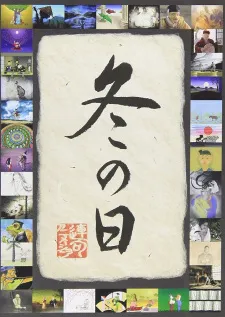 冬の日